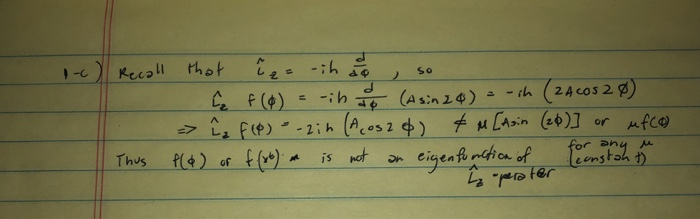 1-c) Recall that L̂z = -iħ d/dφ , so
L̂z f(φ) = -iħ d/dφ (A sin 2φ) = -iħ (2A cos 2φ)
=> L̂z f(φ) = -2iħ (A cos 2φ) ≠ μ [A sin (2φ)] or μ f(φ)
for any μ (constant)
Thus f(φ) or is not an eigenfunction of
L̂z